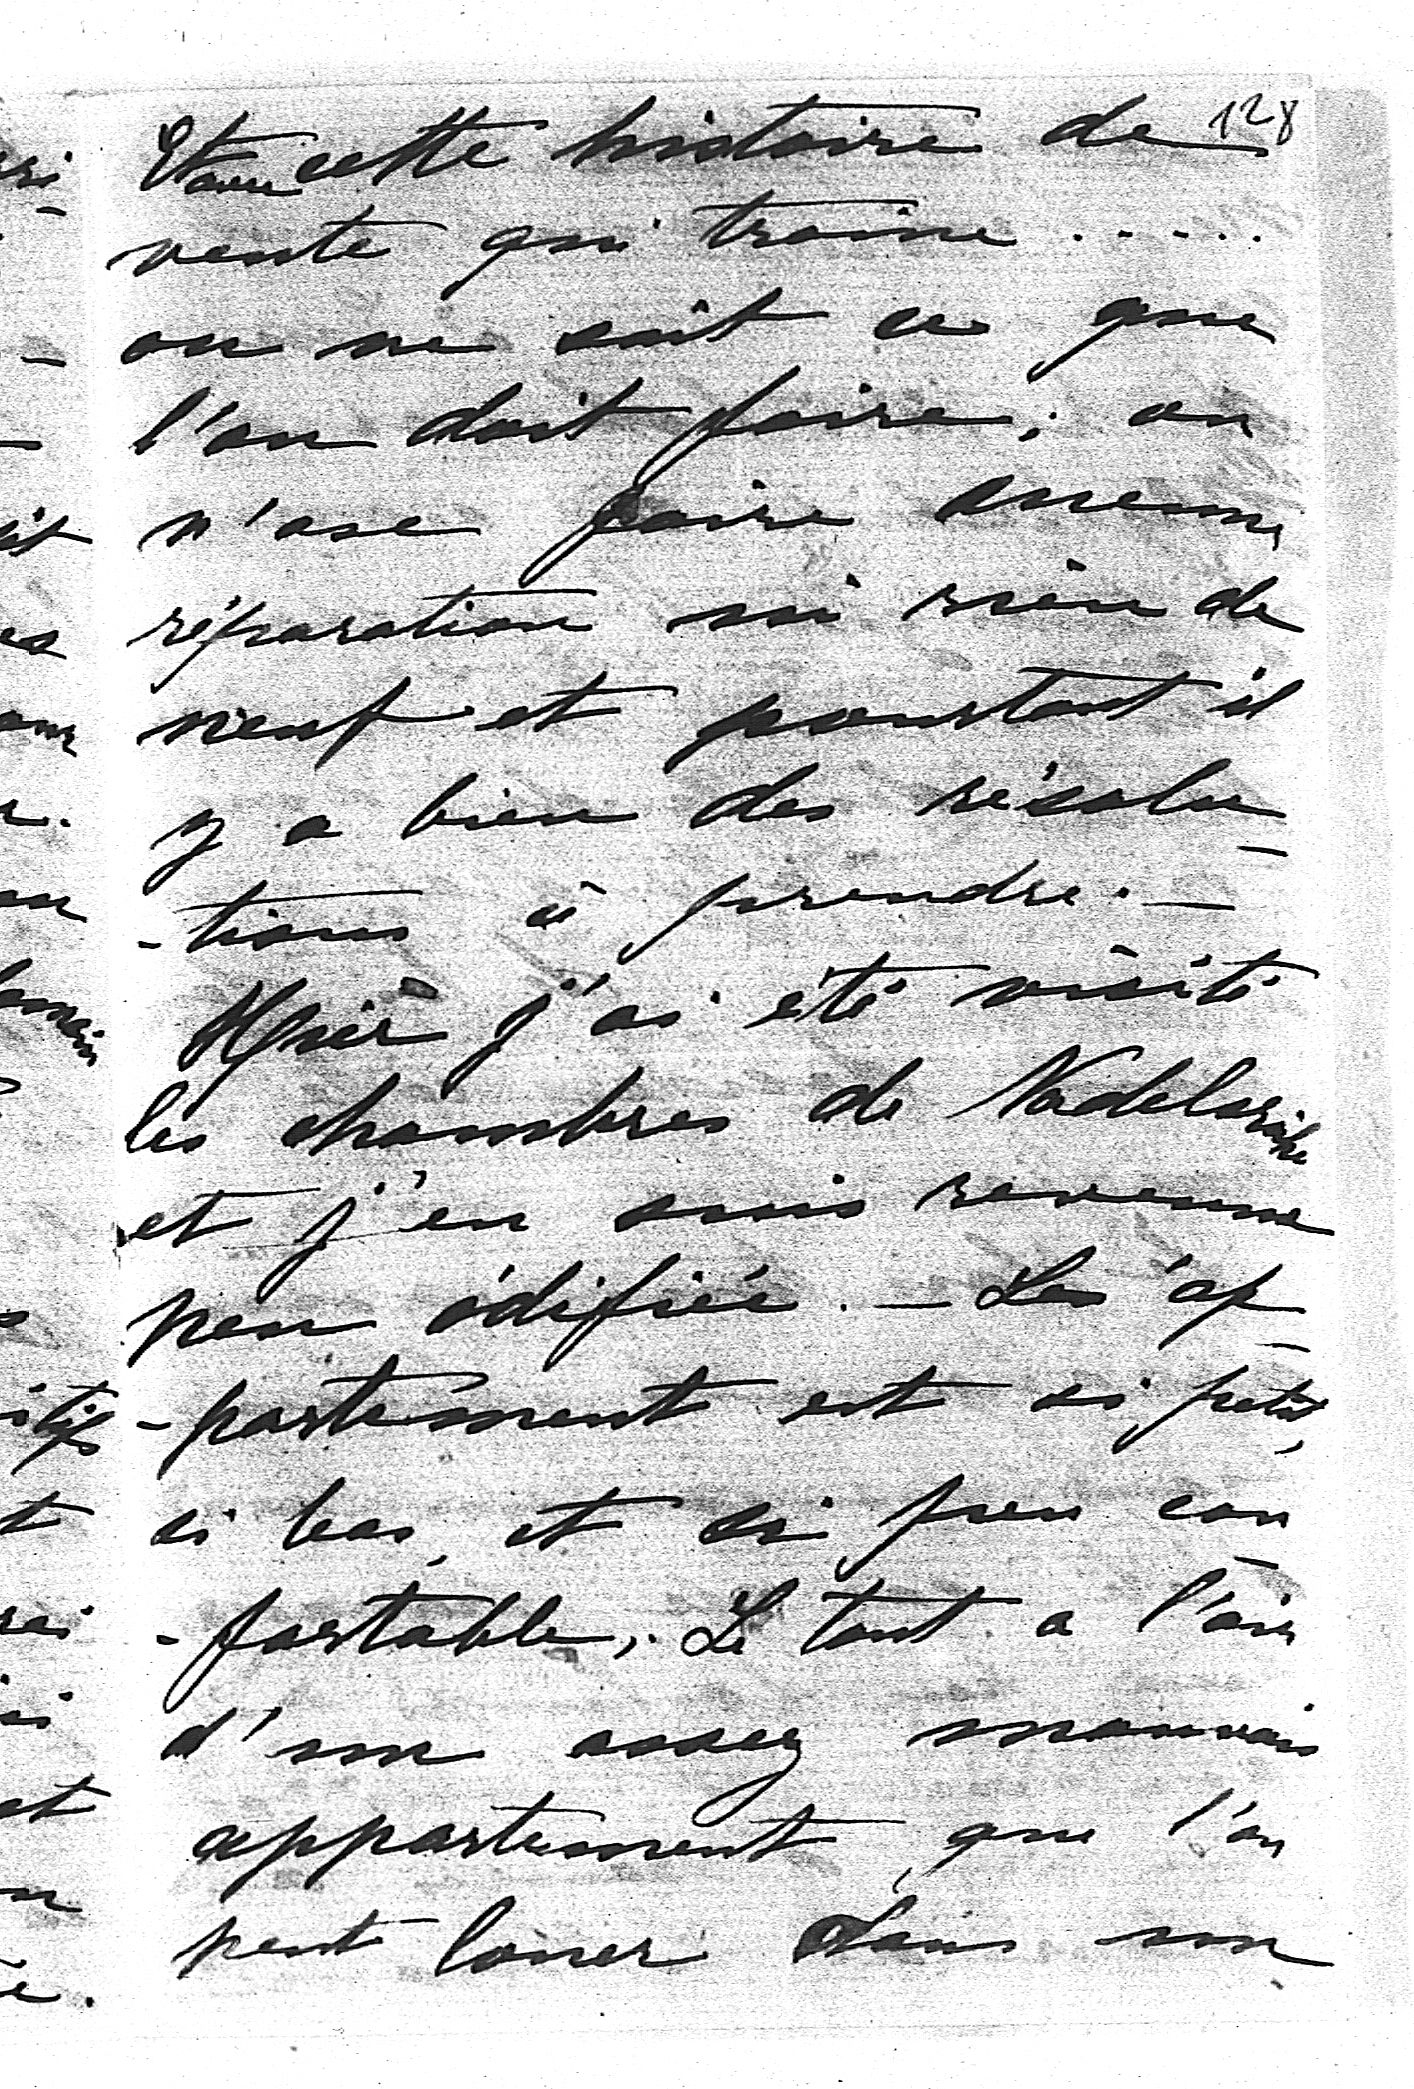 128
Et avec cette histoire de
vente qui traine .....
on ne sait ce que
l'on doit faire; on
n'ose faire aucune
réparation ni rien de
neuf et pourtant il
y a bien des résolu-
-tions à prendre. —
Hier j'ai été visité
les chambres de
et j'en suis revenue
peu édifiée. — Les ap-
-partement est si petit,
si bas, et si peu con-
-fortable,. Le tout a l'air
d'un assez mauvais
appartement que l'on
peut louer dans un